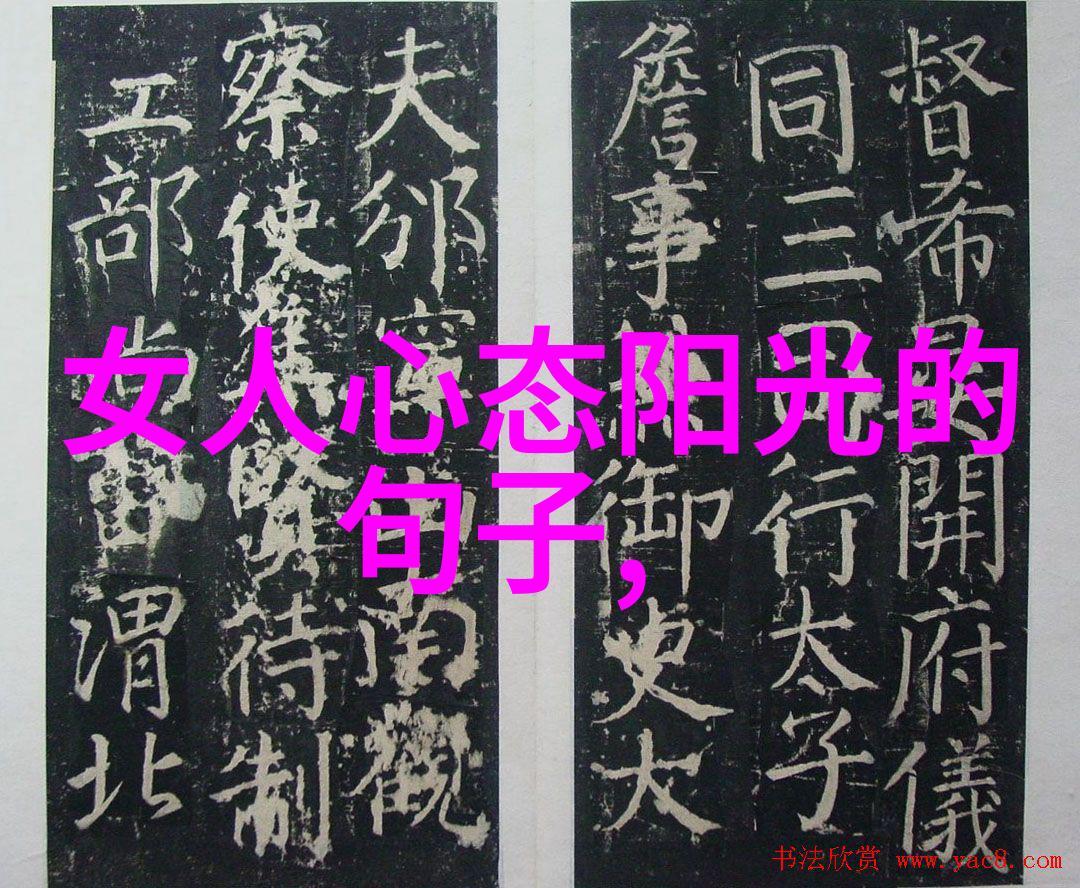 督希開府儀
同三司行太子
詹事御史大
夫邠寧山南觀
察使集賢待制
工部尚書渭北
女人心态阳光的
句子，
书法欣赏 www.yac8.com